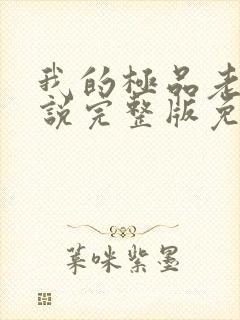 我的极品老
說完整版免
葉咪紫墨